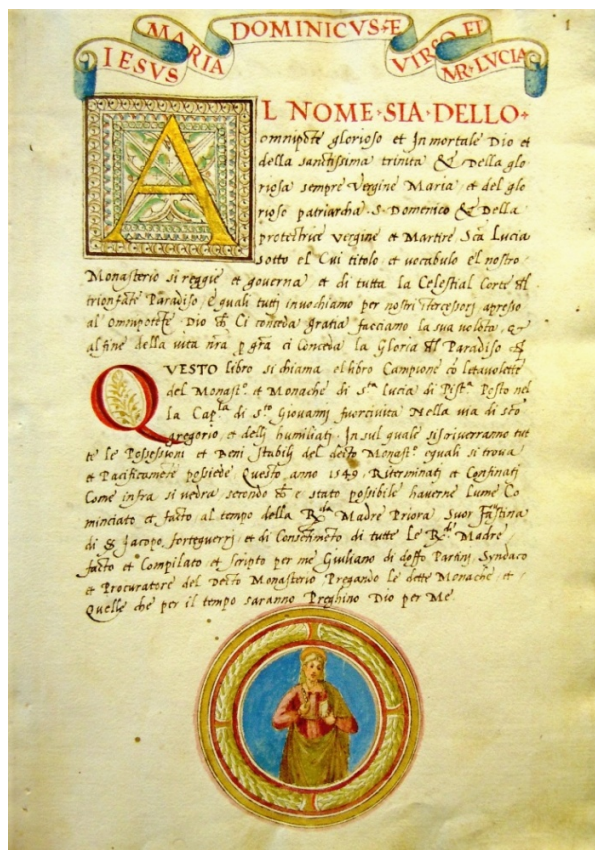 IESVS MARIA DOMINICVS·E VIRGO ET MR·LVCIA
1
AL NOME·SIA·DELLO·
omnipõte glorioso et Inmortale Dio et
della sanctissima trinita & Della glo
riosa sempre Vergine Maria, et del glo
rioso patriarcha·S·Domenico & Della
protectrice vergine et Martire Sca Lucia
sotto el Cui titolo et vocabulo el nostro
Monasterio si reggie et governa et di tutta la Celestial Corte del
trionfãte Paradiso, e quali tutti invochiamo per nostri Itercessori apresso
al Omnipotẽte Dio che Ci conceda gratia facciamo la sua volõta, &
al fine della vita nr̃a p gr̃a ci Conceda la Gloria del Paradiso
QVESTO libro si chiama el libro Campione cõ le tavolette
del Monastº. et Monache di sta Lucia di Pistª Posto nel
la Capla di sto Giovanni fuorcivita Nella via di sto
gregorio, et delli humiliati, In sul quale si scriverranno tut
te le Possessioni et Beni stabili del decto Monastº. equali si trova
et Pacificamẽte possiede Questo anno 1549, Riterminati et Confinati
Come infra si vedra secondo che e stato possibile haverne lume Co
minciato et facto al tempo della Rda Madre Priora, Suor Faustina
di Jacopo forteguerri, et di Consẽtimẽto di tutte le Rde Madre,
facto et Compilato et scripto per me Giuliano di doffo Partini, Syndaco
et Procuratore del Decto Monasterio Pregando le dette Monache et
Quelle che per il tempo saranno Preghino Dio per Me.